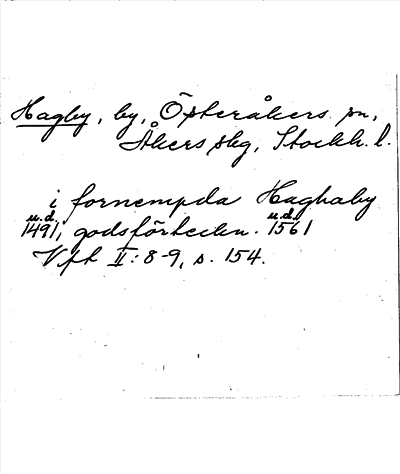 Hagby, by, Österåkers sn,
Åkers skg, Stockh. l.
i fornempda Haghaby
u.d. 1491, godsförteckn. u.d. 1561
Vfk II: 8-9, s. 154.